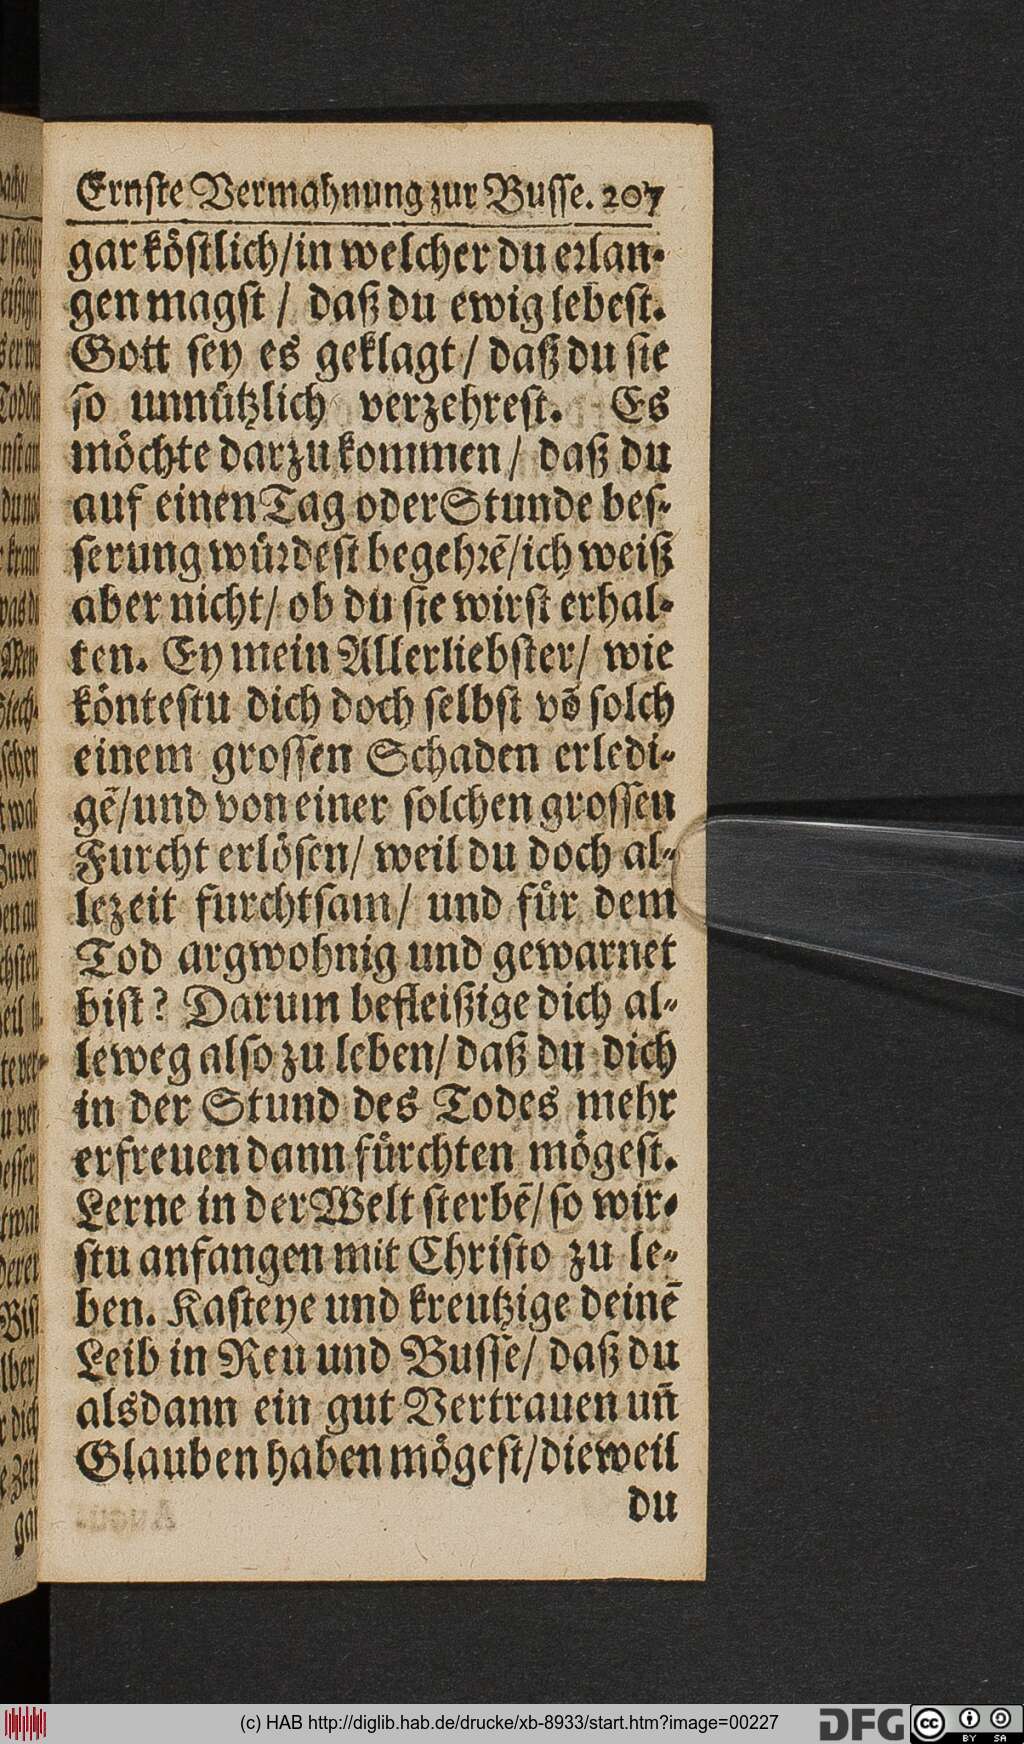 Ernste Vermahnung zur Busse. 207
gar köstlich/in welcher du erlan-
gen magst / daß du ewig lebest.
Gott sey es geklagt / daß du sie
so unnützlich verzehrest. Es
möchte darzu kommen / daß du
auf einen Tag oder Stunde bes-
serung würdest begehrē/ich weiß
aber nicht/ ob du sie wirst erhal-
ten. Ey mein Allerliebster/ wie
köntestu dich doch selbst vō solch
einem grossen Schaden erledi-
gē/und von einer solchen grossen
Furcht erlösen/ weil du doch al-
lezeit furchtsam/ und für dem
Tod argwohnig und gewarnet
bist? Darum befleißige dich al-
leweg also zu leben/ daß du dich
in der Stund des Todes mehr
erfreuen dann fürchten mögest.
Lerne in der Welt sterbē/ so wir-
stu anfangen mit Christo zu le-
ben. Kasteye und kreutzige deinē
Leib in Reu und Busse/ daß du
alsdann ein gut Vertrauen un̄
Glauben haben mögest/dieweil
du
(c) HAB http://diglib.hab.de/drucke/xb-8933/start.htm?image=00227
DFG
cc
BY SA